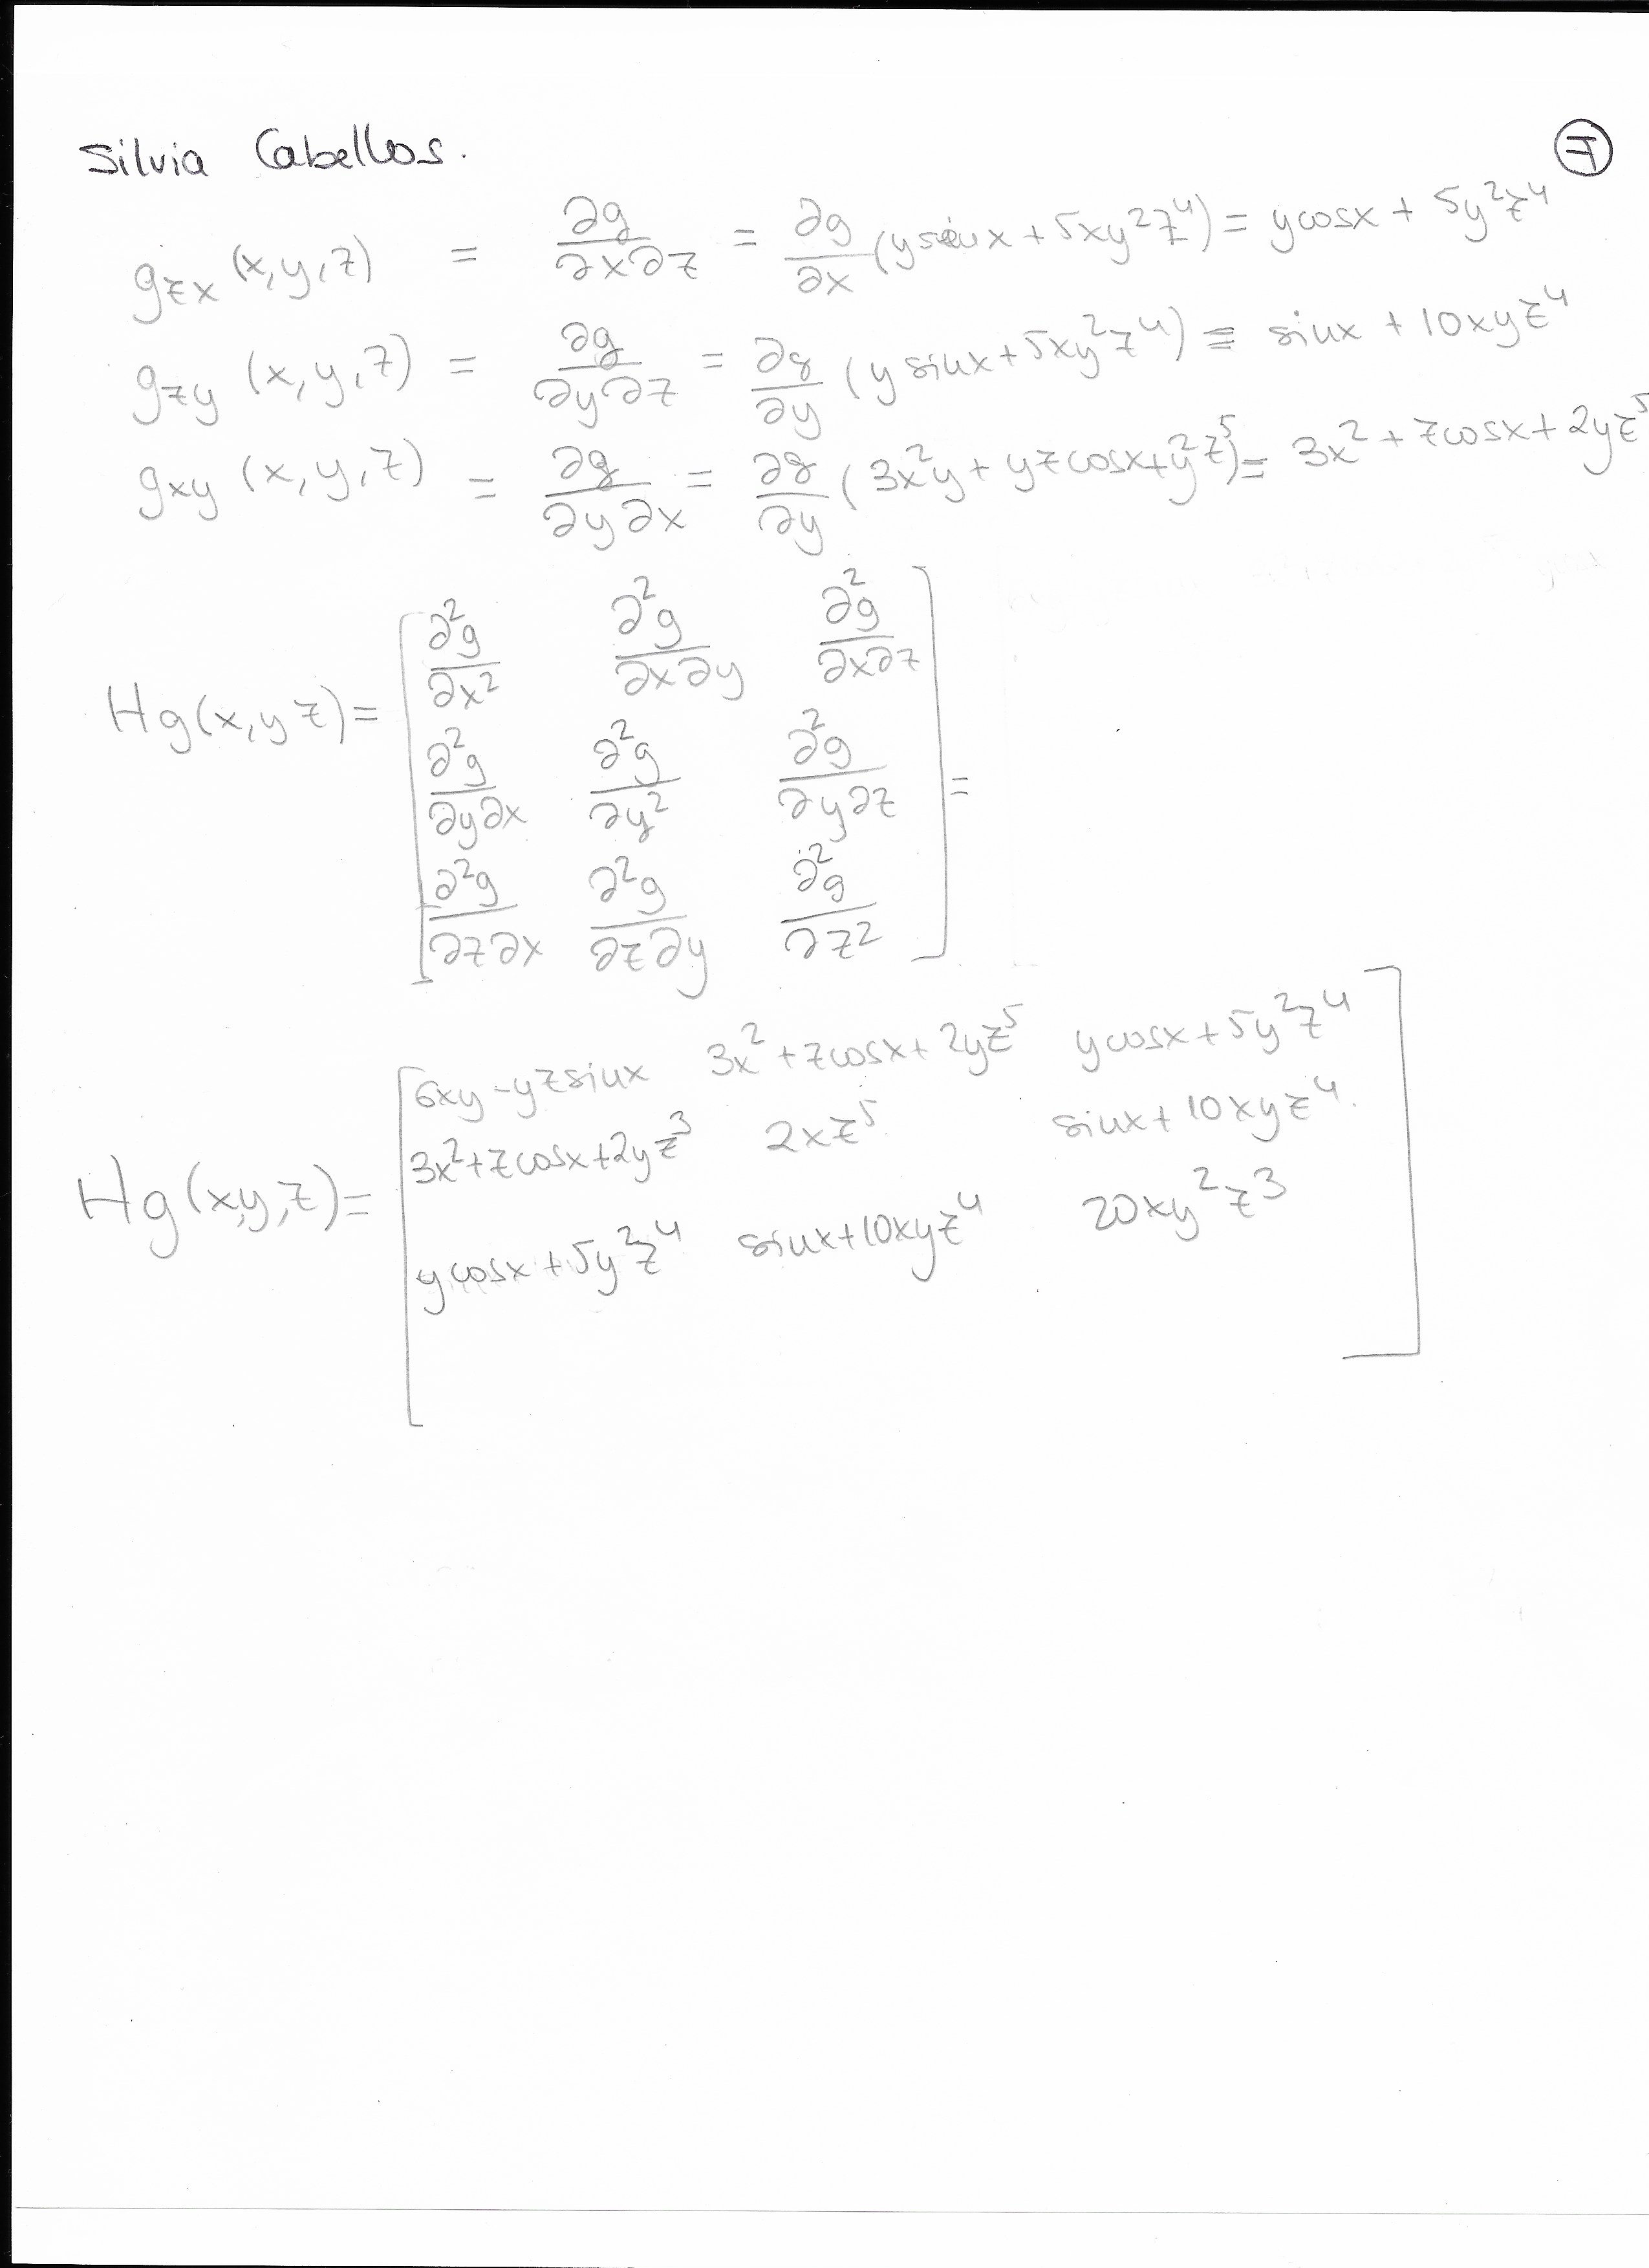 Silvia Cabellos.
⑦
gzx (x,y,z) = ∂g/∂x∂z = ∂g/∂x (y sinx + 5xy²z⁴) = ycosx + 5y²z⁴
gzy (x,y,z) = ∂g/∂y∂z = ∂g/∂y (y sinx + 5xy²z⁴) = sinx + 10xyz⁴
gxy (x,y,z) = ∂g/∂y∂x = ∂g/∂y (3x²y + yzcosx + y²z⁵) = 3x² + zcosx + 2yz⁵
Hg(x,y z) = [ ∂²g/∂x² ∂²g/∂x∂y ∂²g/∂x∂z
∂²g/∂y∂x ∂²g/∂y² ∂²g/∂y∂z
∂²g/∂z∂x ∂²g/∂z∂y ∂²g/∂z² ] =
Hg(x,y,z) = [ 6xy - yzsinx 3x² + zcosx + 2yz⁵ ycosx + 5y²z⁴
3x² + zcosx + 2yz³ 2xz⁵ sinx + 10xyz⁴.
ycosx + 5y²z⁴ sinx + 10xyz⁴ 20xy²z³ ]